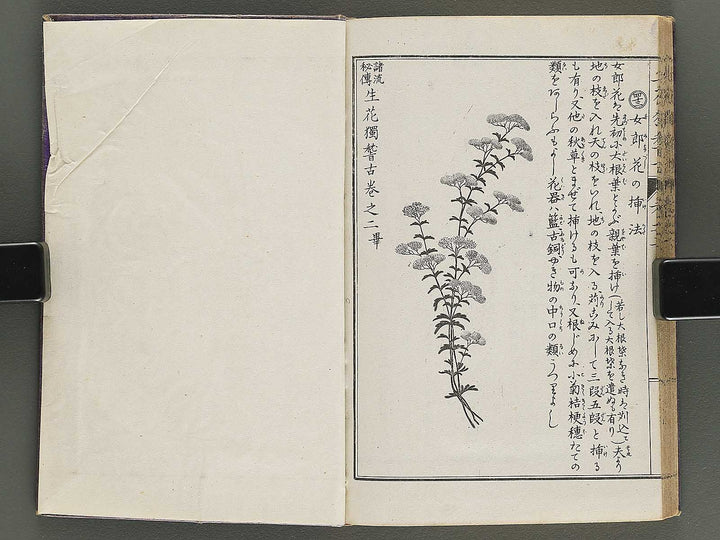 女郎花の挿法
女郎花は先初に大根葉とらふ親葉を挿け(若し大根葉なき時は刈込て
して入る大根葉を遣ぬも有り)夫より
地の枝を入れ天の枝をいれ地の枝を入る
して三段五段と挿る
も有り又他の秋草とまぜて挿けるも可なり又根じめに小菊桔梗穂たての
類をあしらふもよし花器ハ籃古銅やき物の中口の類うつりよし
諸流
秘傳
生花獨稽古巻之二畢